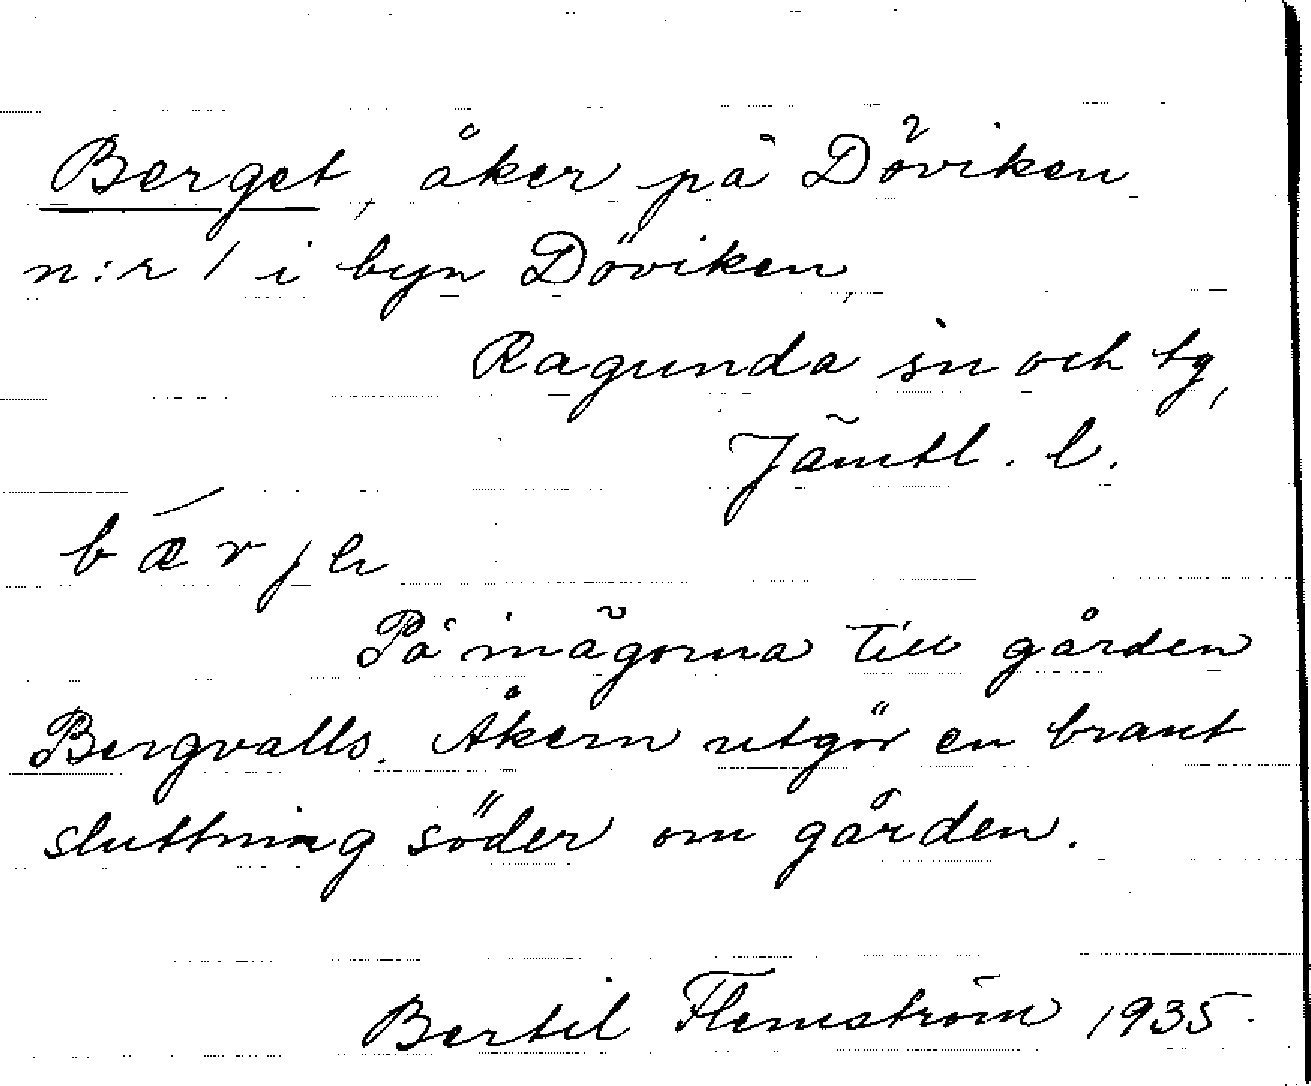 Berget, åker på Döviken
n:r 1 i byn Döviken,
Ragunda sn och tg,
Jämtl. l.
På inägorna till gården
Bergvalls. Åkern utgör en brant
sluttning söder om gården.
Bertil Flemström 1935.